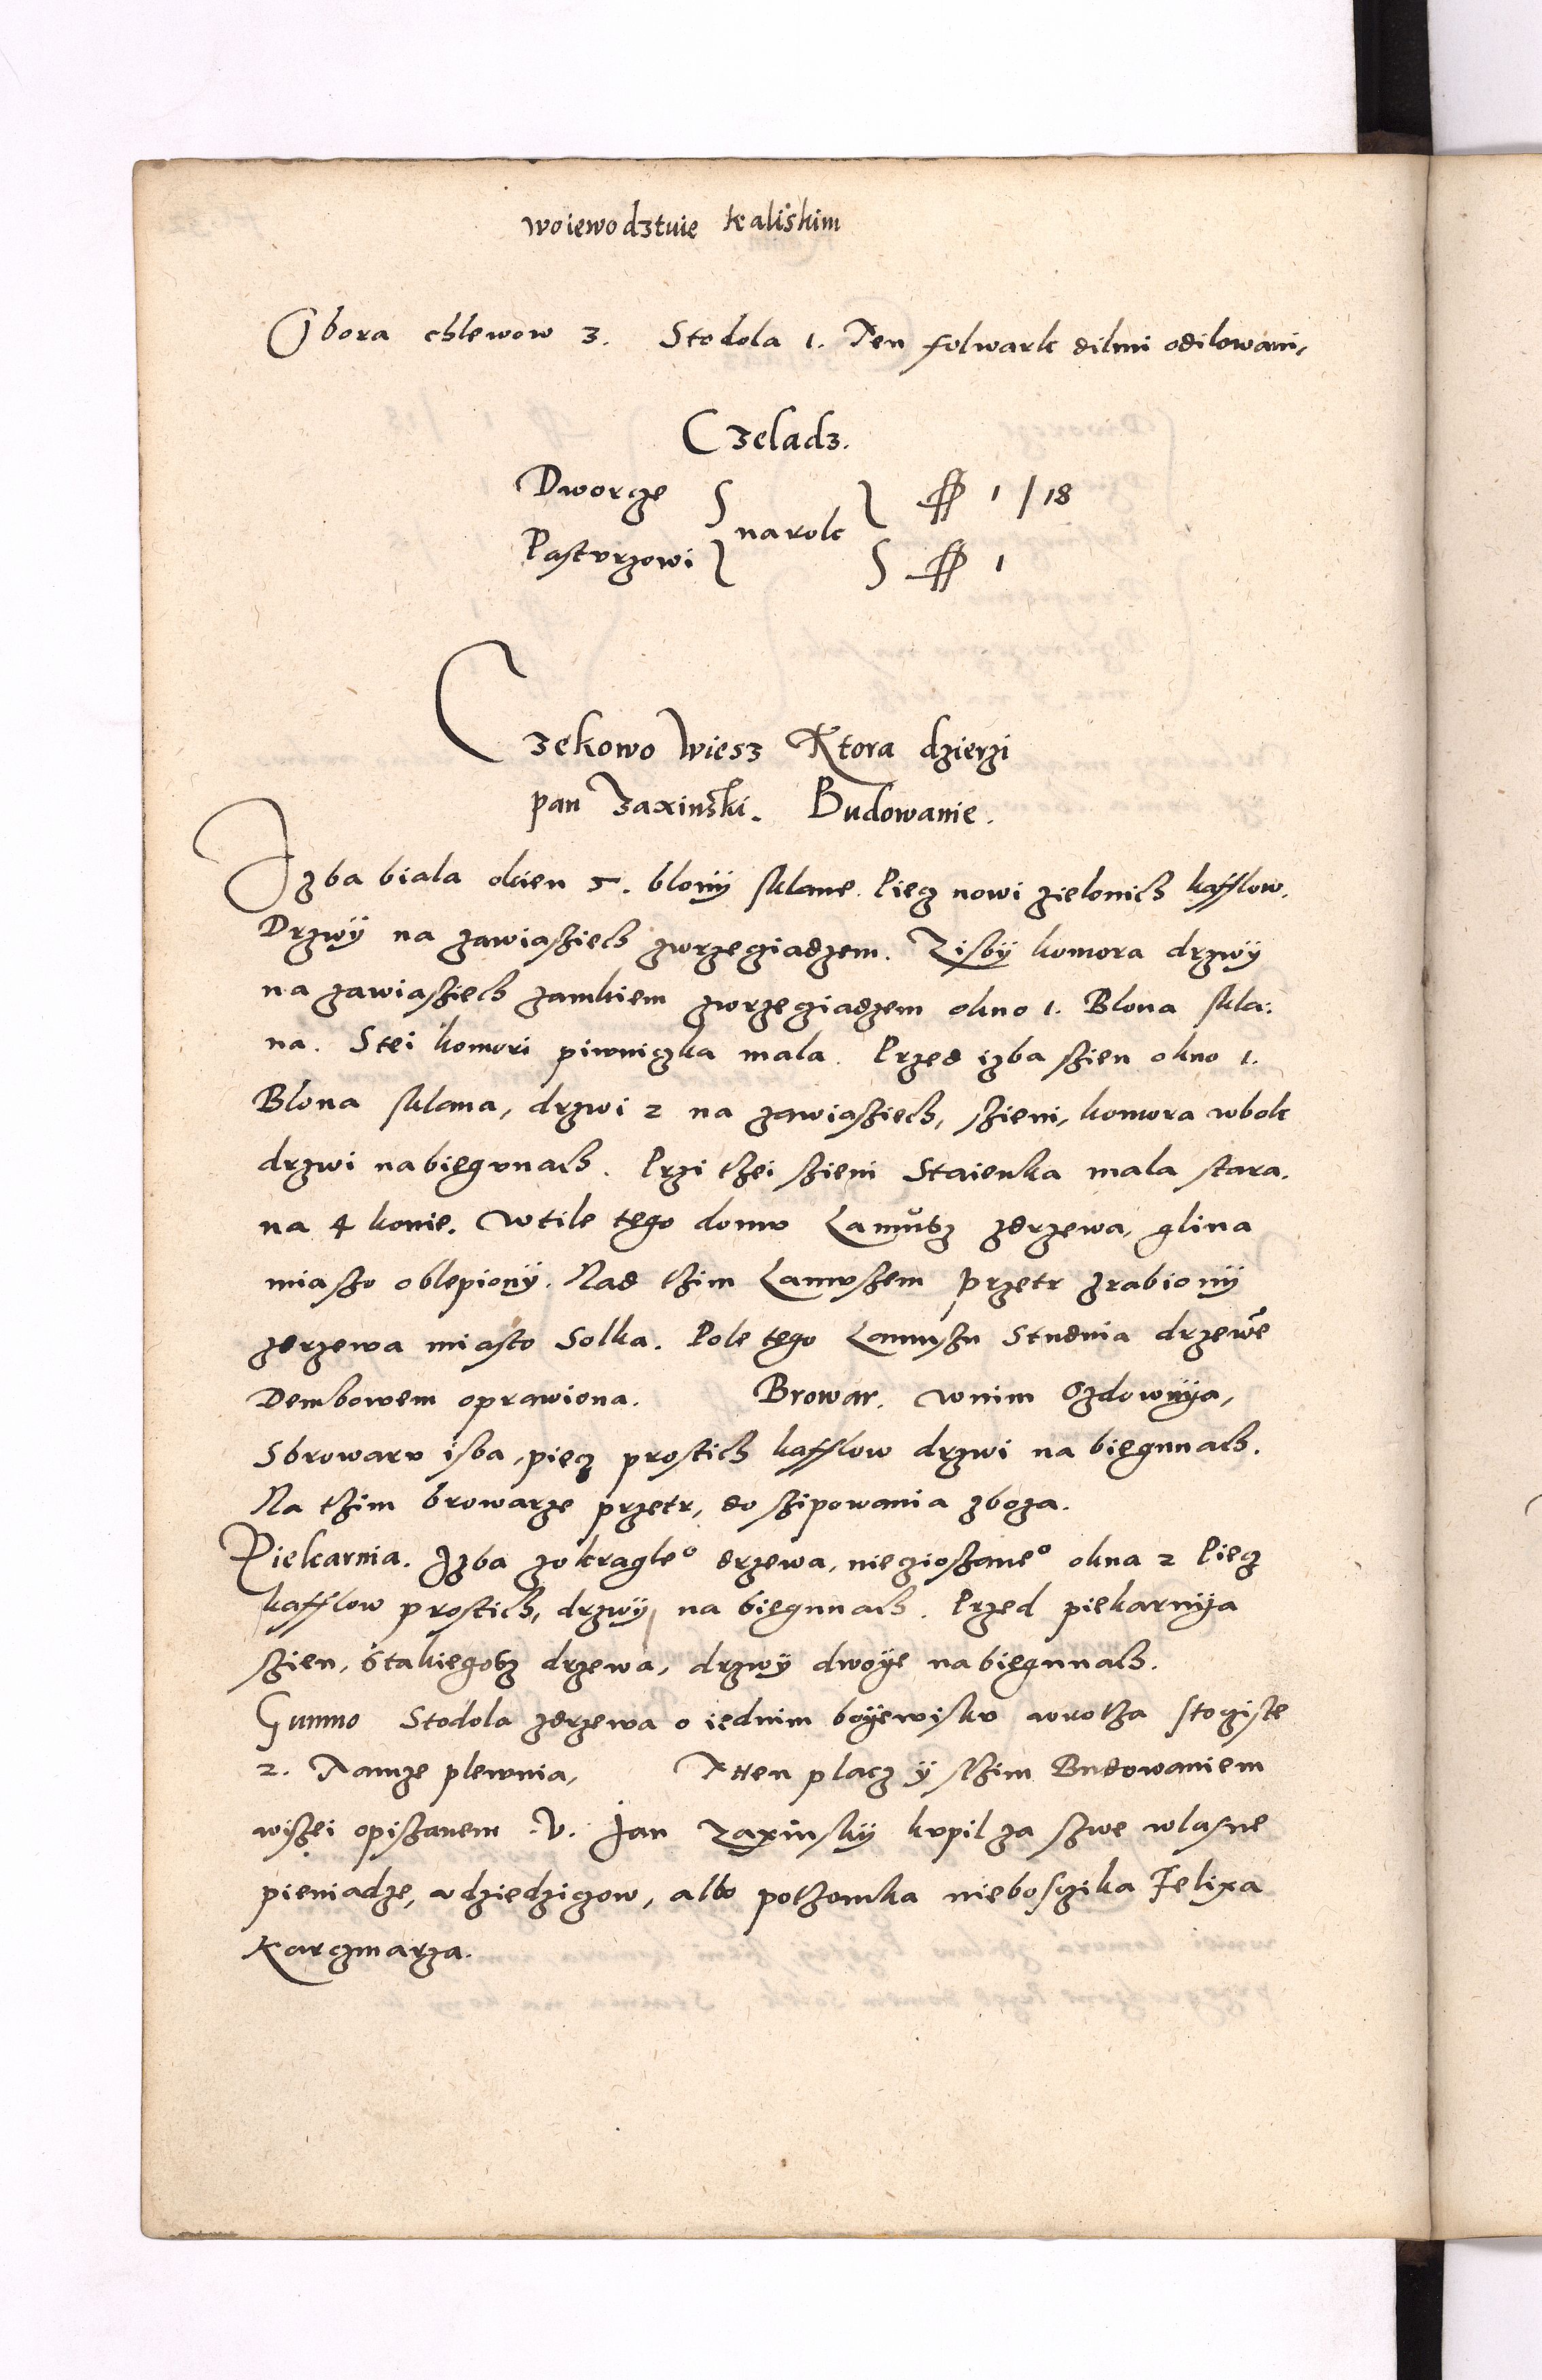 woiewodztwie kaliskim
Obora chlewow 3. Stodola 1. Ten folwark dilmi odilowani,
Czeladz.
Dworcze } na rok { ff 1 / 18
Pasturzowi } { ff 1
Czekowo wiesz Ktora dzierzi
pan Zaxinski. Budowanie.
Izba biala okien 5. blony sklane. Piecz nowi zielonich kafflow.
Drzwÿ na zawiasziech zwrzecziadzem. Zisbÿ komora drzwÿ
na zawiasziech zamkiem zwrzecziadzem okno 1. Blona skla:
na. Stei komori piwniczka mala. Przed izba szien okno 1.
Blona sklana, drzwi 2 na zawiasziech, szieni, komora wbok
drzwi na biegunach. Przi thei szieni Staienka mala stara.
na 4 konie. w tile tego domu Lamusz zdrzewa, glina
miaszo oblepionÿ. Nad thim Lamuszem przetr zrabionÿ
zdrzewa miasto Solka. Pole tego Lamuszu Studnia drzewe
Dembowem oprawiona. Browar. wnim Ozdownÿa,
Sbrowaru isba, piecz prostich kafflow drzwi na biegunach.
Na thim browarze przetr, do szipowania zboza.
Piekarnia. Izba zokragleo drzewa, niecziosaneo okna 2 Piecz
kafflow prostich, drzwÿ na biegunach. Przed piekarnÿa
szien, stakiegosz drzewa, drzwÿ dwoÿe na biegunach.
Gumno Stodola zdrzewa o iednim boÿewisku wrotha stogiste
2. Tamze plewnia, Atten placz ÿ sthim Budowaniem
wiszei opiszanem .V. Jan Zaxinskÿ kupil za szwe wlasne
pieniadze, u dziedziczow, albo pothomka nieboszika Felixa
Karczmarza.